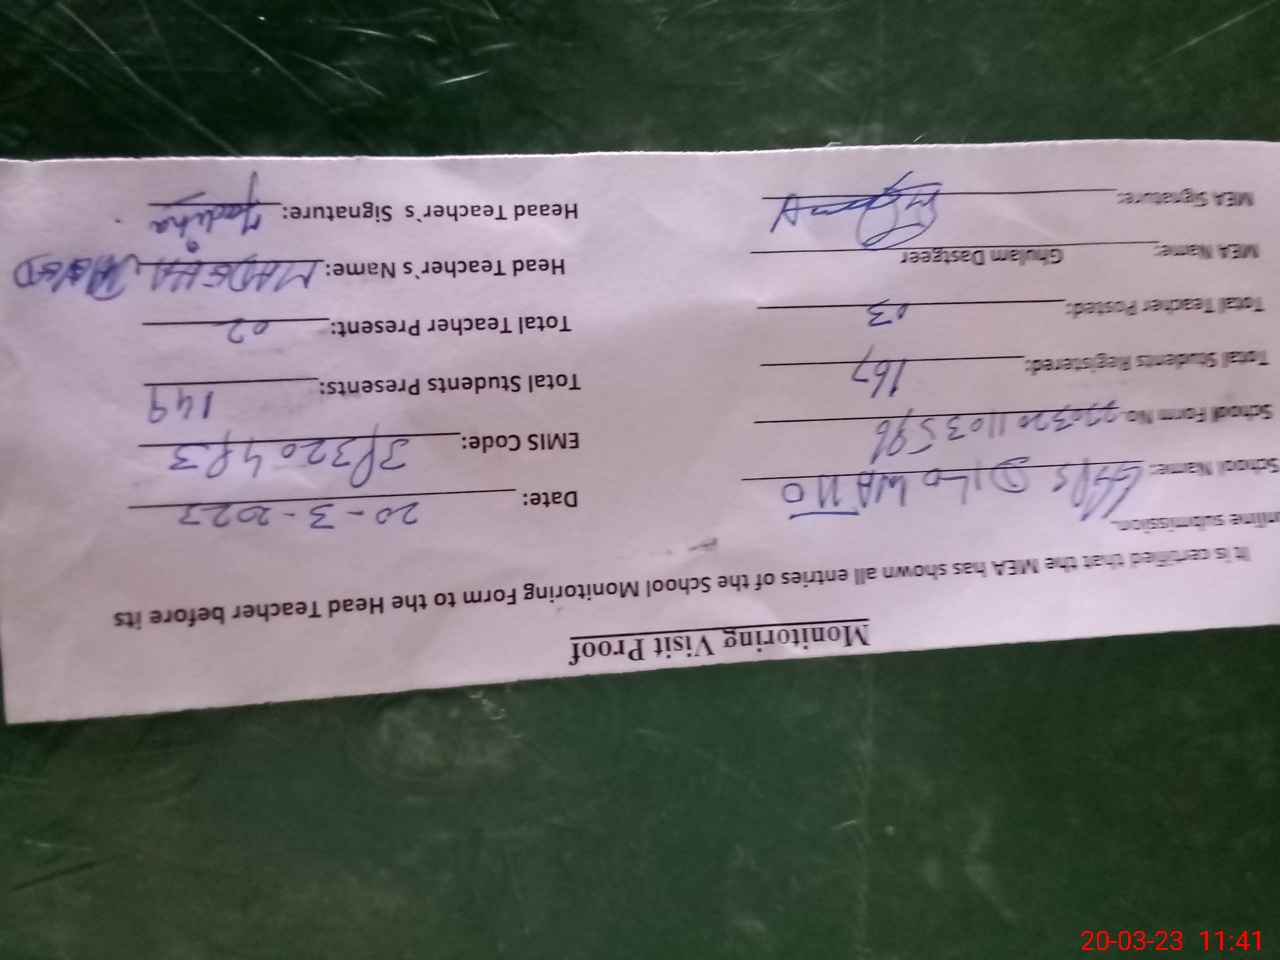 Monitoring Visit Proof
It is certified that the MEA has shown all entries of the School Monitoring Form to the Head Teacher before its
nline submission.
School Name: GGPS DILO WATTO Date: 20-3-2023
School Form No 2203201103596 EMIS Code:
Total Students Registered: 167 Total Students Presents: 149
Total Teacher Posted: 03 Total Teacher Present: 02
MEA Name: Ghulam Dastgeer Head Teacher`s Name: MADEHA
MEA Signature: Heaad Teacher`s Signature: Madiha
20-03-23 11:41